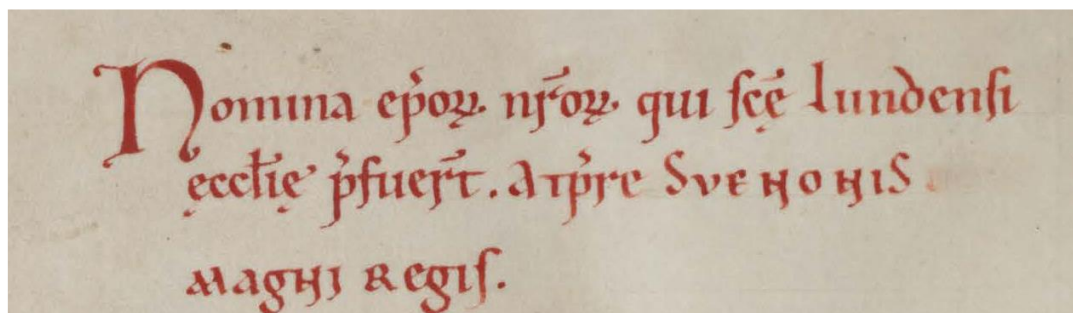 Nomina ep̄oꝝ. nr̄oꝝ. qui sc̄ę lundensi
ęccl̄ię p̄fuer̄t. A tp̄re SVENONIS
MAGNI REGIS.